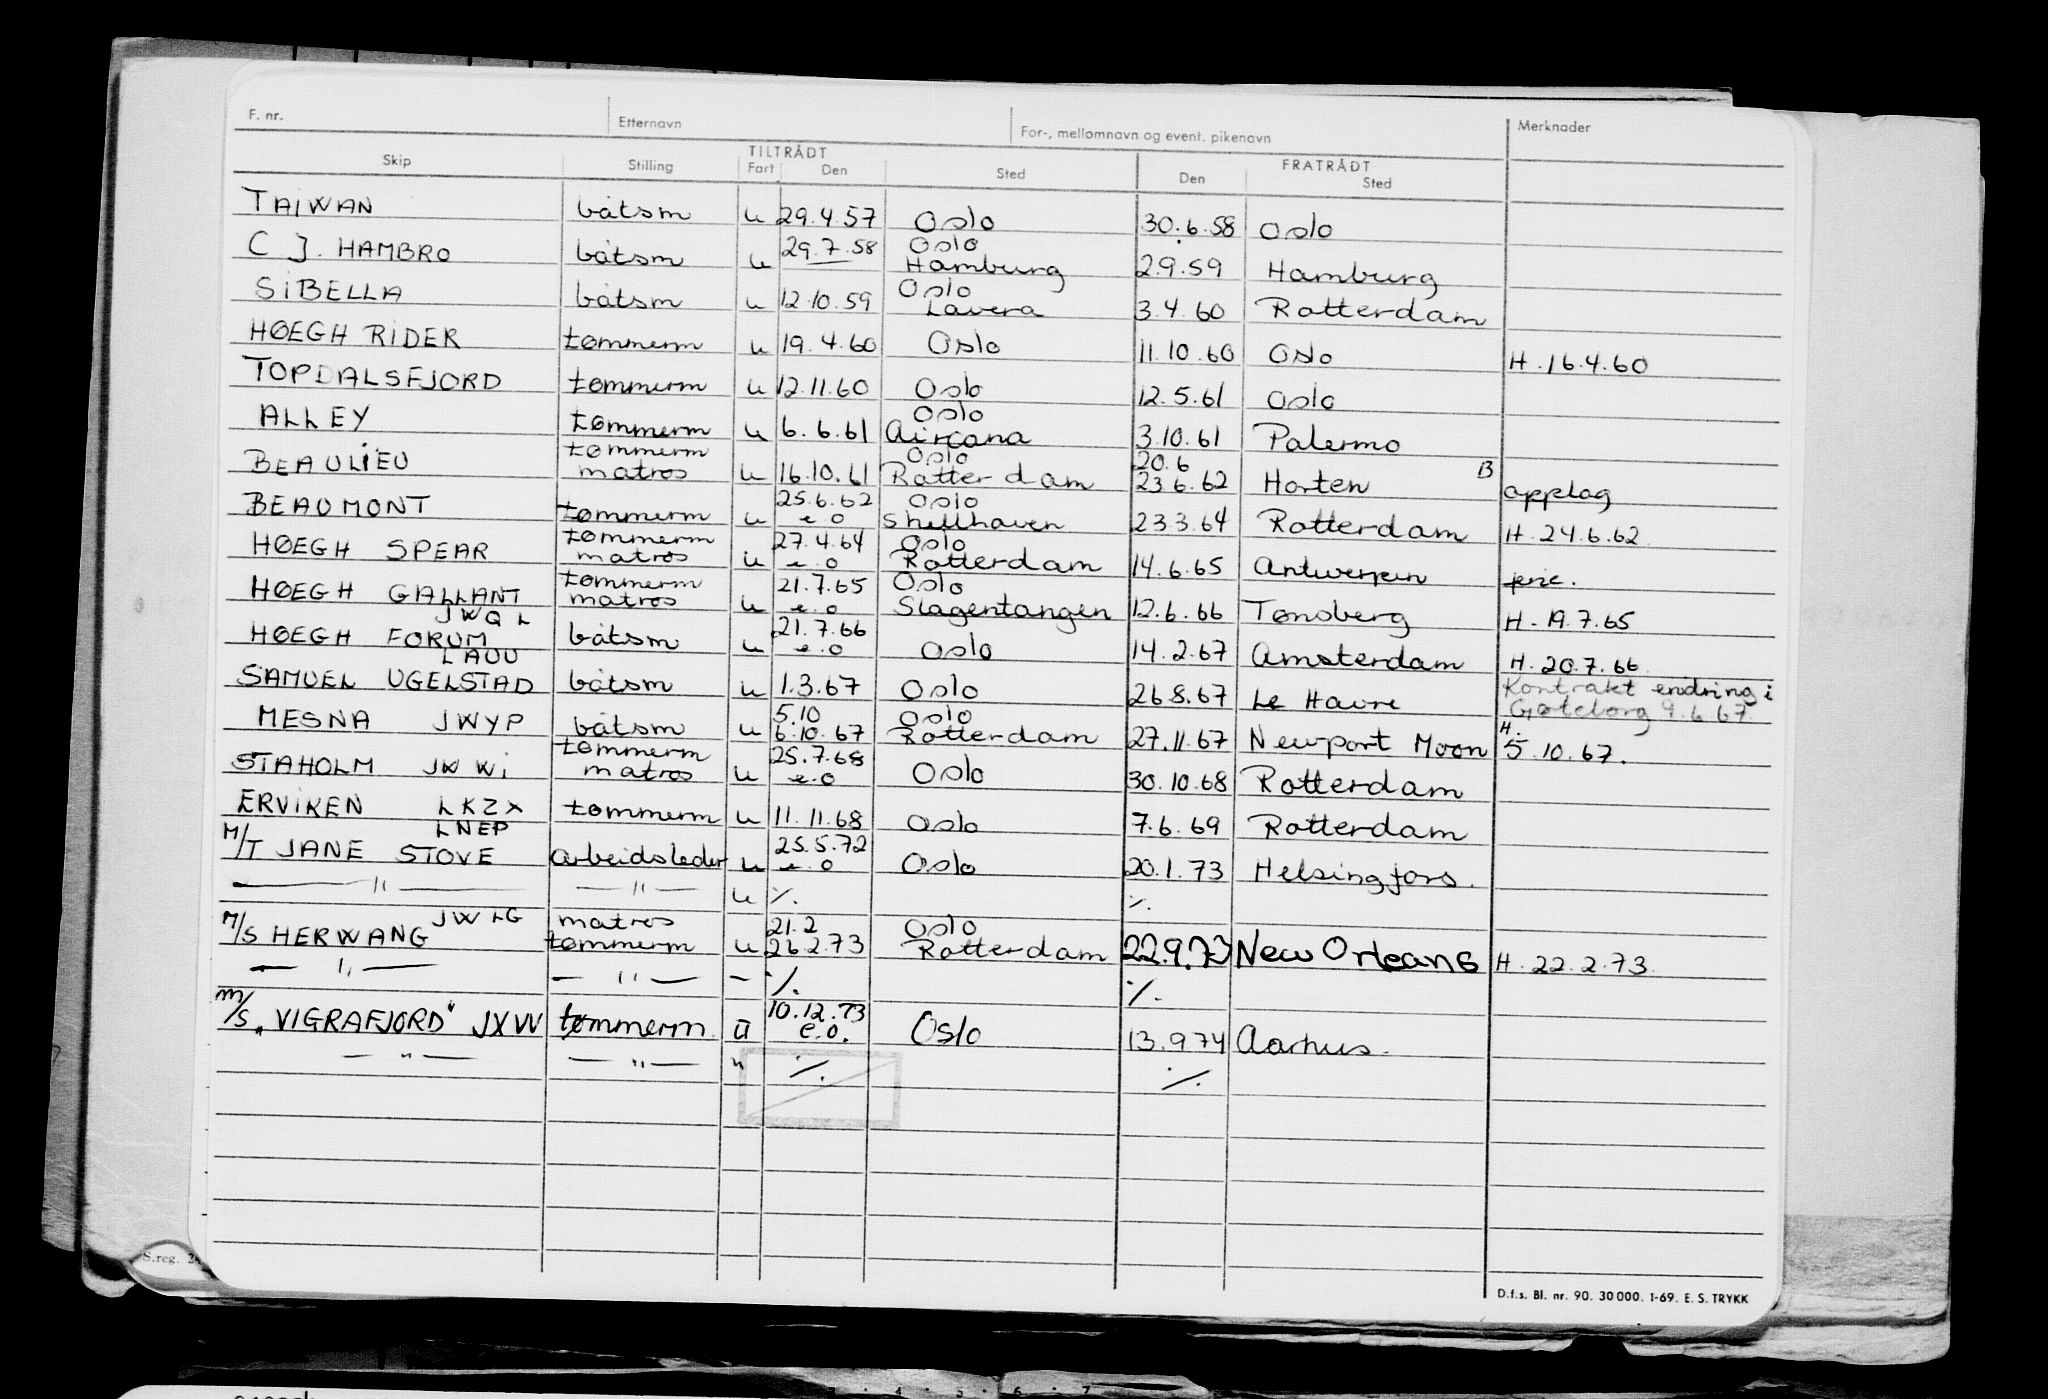 F. nr. Etternavn For-, mellomnavn og event. pikenavn Merknader
TILTRÅDT FRATRÅDT
Skip Stilling Fart Den Sted Den Sted
TAIWAN båtsm u 29.4.57 Oslo 30.6.58 Oslo
C J. HAMBRO båtsm u 29.7.58 Oslo Hamburg 2.9.59 Hamburg
SIBELLA båtsm u 12.10.59 Oslo Lavera 3.4.60 Rotterdam
HØEGH RIDER tømmerm u 19.4.60 Oslo 11.10.60 Oslo H. 16.4.60
TOPDALSFJORD tømmerm u 12.11.60 Oslo 12.5.61 Oslo
ALLEY tømmerm u 6.6.61 Oslo 3.10.61 Palermo
BEAULIEU tømmerm matros u 16.10.61 Oslo Rotterdam 20.6 23.6.62 Horten B opplag
BEAUMONT tømmerm u 25.6.62 e.o Oslo Shellhaven 23.3.64 Rotterdam H. 24.6.62
HØEGH SPEAR tømmerm matros u 27.4.64 e.o Oslo Rotterdam 14.6.65 Antwerpen
HØEGH GALLANT JWQL tømmerm matros u 21.7.65 e.o Oslo Slagentangen 12.6.66 Tønsberg H. 19.7.65
HØEGH FORUM båtsm u 21.7.66 e.o Oslo 14.2.67 Amsterdam H. 20.7.66
LAUU
SAMUEL UGELSTAD båtsm u 1.3.67 Oslo 26.8.67 Le Havre Kontrakt endring i Gøteborg 9.6.67
MESNA JWYP båtsm u 5.10 6.10.67 Oslo Rotterdam 27.11.67 Newport Moon H. 5.10.67.
STAHOLM JWWI tømmerm matros u 25.7.68 e.o Oslo 30.10.68 Rotterdam
ERVIKEN LKZX tømmerm u 11.11.68 Oslo 7.6.69 Rotterdam
LNEP
M/T JANE STOVE arbeidsleder u 25.5.72 e.o Oslo 20.1.73 Helsingfors.
— " — — " — u %. %.
M/S HERWANG JWLG matros tømmerm u 21.2 26.2.73 Oslo Rotterdam 22.9.73 New Orleans H. 22.2.73
— " — — " — – %. %.
M/S „VIGRAFJORD" JXVV tømmerm. u 10.12.73 e.o. Oslo 13.9.74 Aarhus.
— " — — " — " %. %.
S.reg.
D.f.s. Bl. nr. 90. 30 000. 1-69. E. S. TRYKK